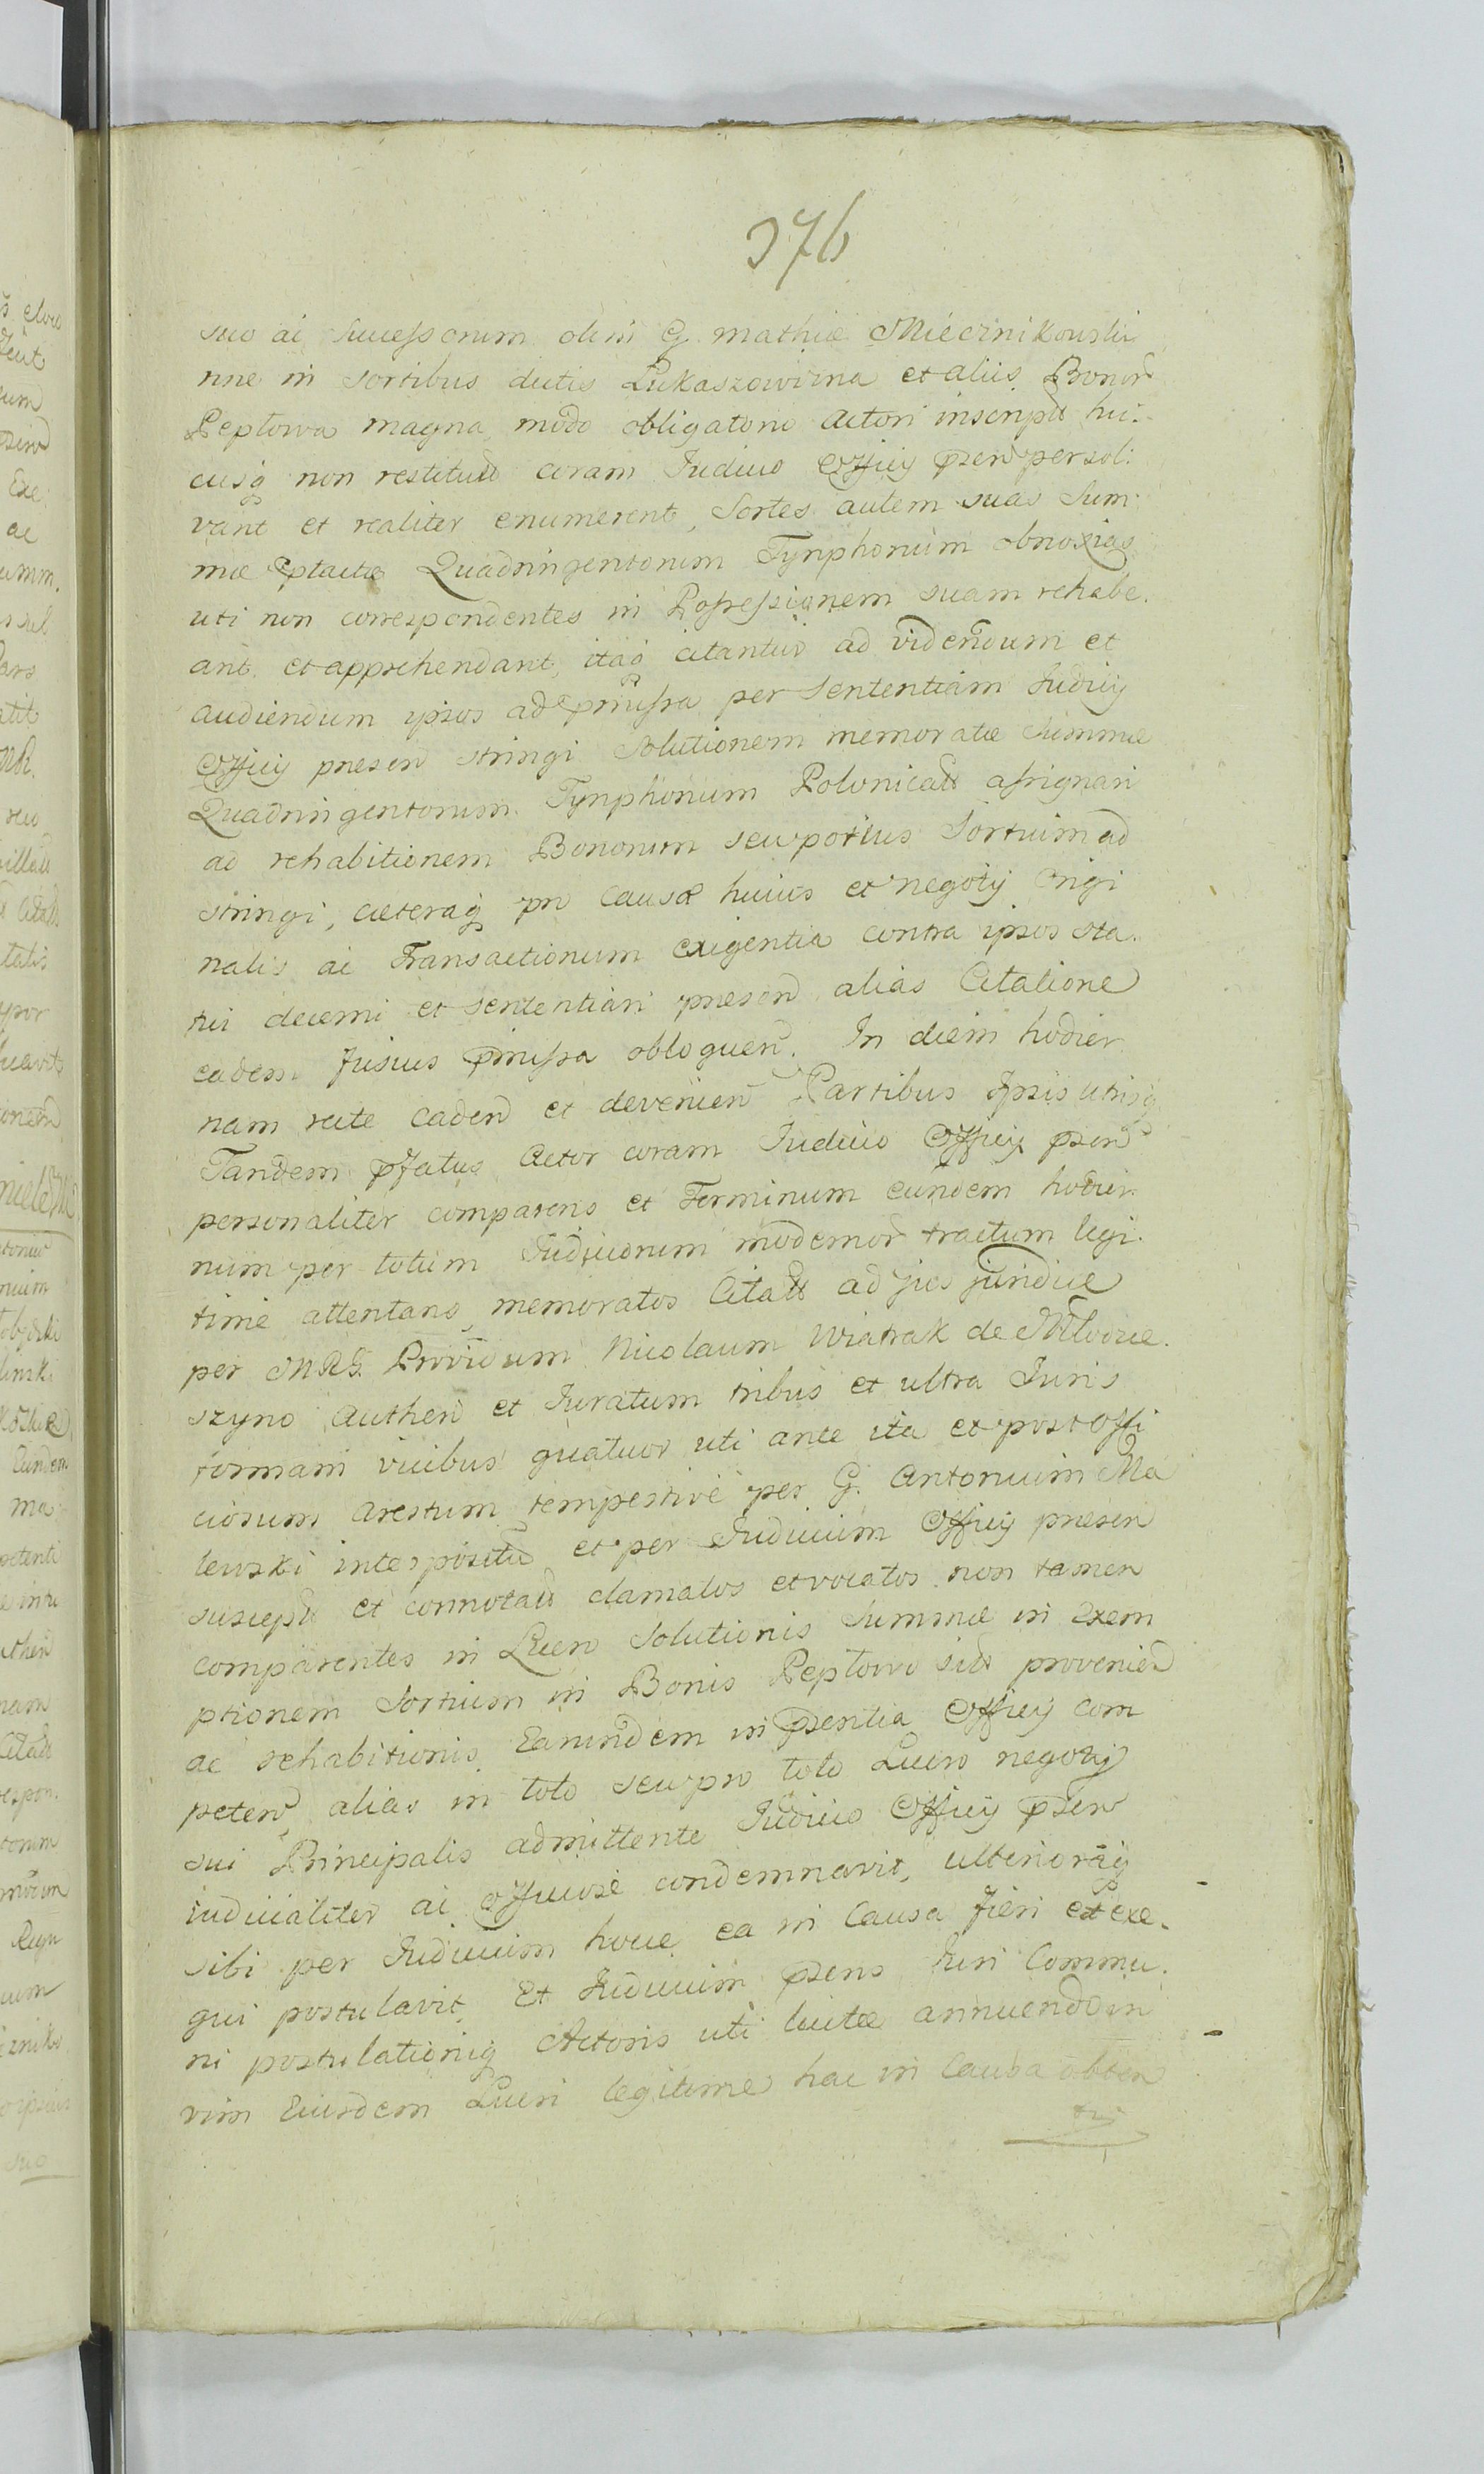 376
suo ac Successorum olim G. Mathiæ Miecznikowski
nne in sortibus dictis Lukaszowizna et aliis Bonor
Peptowa magna, modo obligatorio Actori inscript hu:
cusq non restitutæ coram Iudicio Officij psen persol:
vant et realiter enumerent, Sortes autem suas Sum:
mæ Quadringentorum Tynphonum obnoxias
uti non correspondentes in Possessionem suam rehabe.
ant et apprehendant, itaq citantur ad videndum et
audiendum ipsos ad pmissa per Sententiam Iudicij
Officij presen stringi Solutionem memoratæ Summæ
Quadringentorum Tynphonum Polonical assignari
ad rehabitionem Bonorum seu potius Sortium ad
stringi, cæteraq pro Causæ huius et negotij Origi
nalis ac Transactionum exigentia contra ipsos sta.
tui decerni et sententiari presen alias Citatione
eadem fusius pmissa obloquen. In diem hodier
nam rite caden et devenien Partibus ipsis utrisq
Tandem pfatus Actor coram Iudicio Officij psen
personaliter comparens et Terminum eundem hodier
num per totum Iudiciorum modernor tractum legi.
time attentans, memoratos Citatt ad jus juridice
per MRG. Providum Nicolaum Wiatrak de Mlodzie.
szyno Authen et Iuratum tribus et ultra Iuris
formam vicibus quatuor uti ante ita et post offi
ciosum Arestum tempestive per G. Antonium Ma
lewski interpositu et per Iudicium Officij presen
suscept et connotatt clamatos et vocatos non tamen
comparentes in Lucro Solutionis Summæ in Exem
ptionem Sortium in Bonis Peptowo sitt provenien
ac rehabitionis Earundem in psentia Officij com
peten, alias in toto seu pro toto Lucro negotij
sui Principalis admittente Iudicio Officij psen
iudicialiter ac Officiose condemnavit, ulterioraq
sibi per Iudicium hocce ea in Causa fieri et exe.
qui postulavit. Et Iudicium psens Iuri Commu.
ni postulationiq Actoris uti licitæ annuendo in
vim Eiusdem Lucri legitime hac in Causa obten
ti